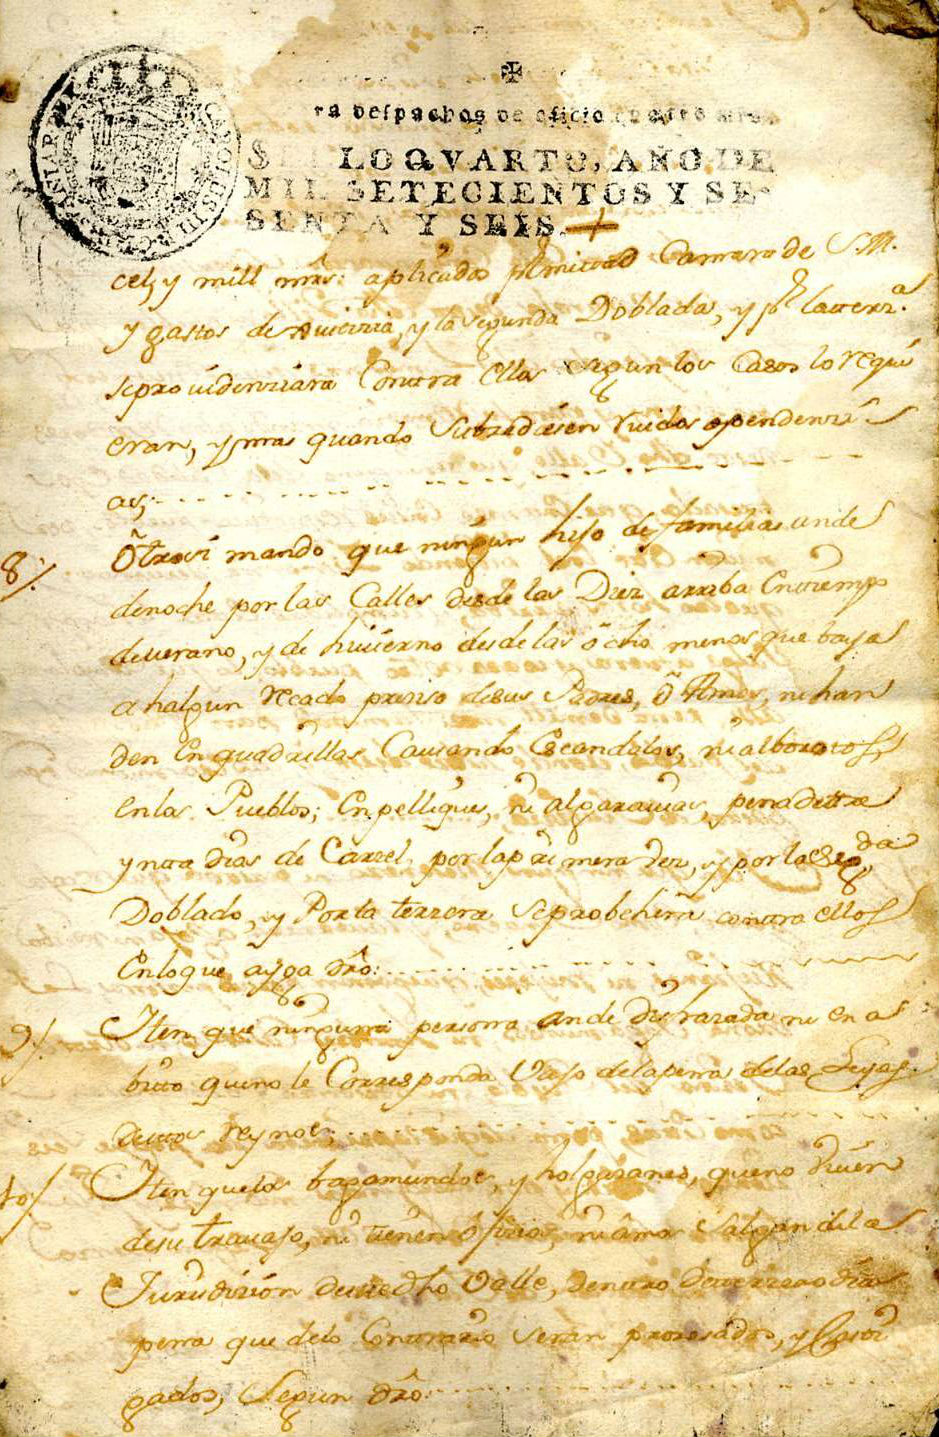 ✠
ra despachos de oficio quatro mrs.
S LO QVARTO, AÑO DE
MIL SETECIENTOS Y SE-
SENTA Y SEIS.
CAROLUS III D G
HISPANIAR REX
cel, y mill mrs: aplicados pr mittad Camara de S.M.
y gastos de Justizia, y la segunda Doblada, y pr la terzra
se providenziara Contra ellos segun los Casos lo requi
eran, y mas quando Subzediesen ruidos o pendenzi
as;
8/. Ôtrosi mando que ningun hijo de familias ande
denoche por las Calles desde las Diez arriba En tiempo
de verano, y de hivierno desde las ôcho menos que baya
a halgun recado preziso de sus Padres, ô Amos, ni han
den En quadrillas Causando Escandalos, ni alborotos,
en los Pueblos; En pelliques, ni algaravias, pena de tre
ynta dias de Carzel, por la primera vez, y por la Segda
Doblado, y Por la terzera se probehera contra ellos
En lo que ayga dro:
9/. Iten que ninguna persona ande disfrazada ni en a
bito que no le Corresponda Vajo de la pena de las Leyes
destos reynos;
10/. Iten que los bagamundos, y holgazanes, que no viven
de su travajo, ni tienen ôfizio, ni âmo Salgan de la
Jurisdizion de este dho Valle, dentro de terzero dia
pena que de lo Contrario seran prozesados, y Casti
gados, Segun dro